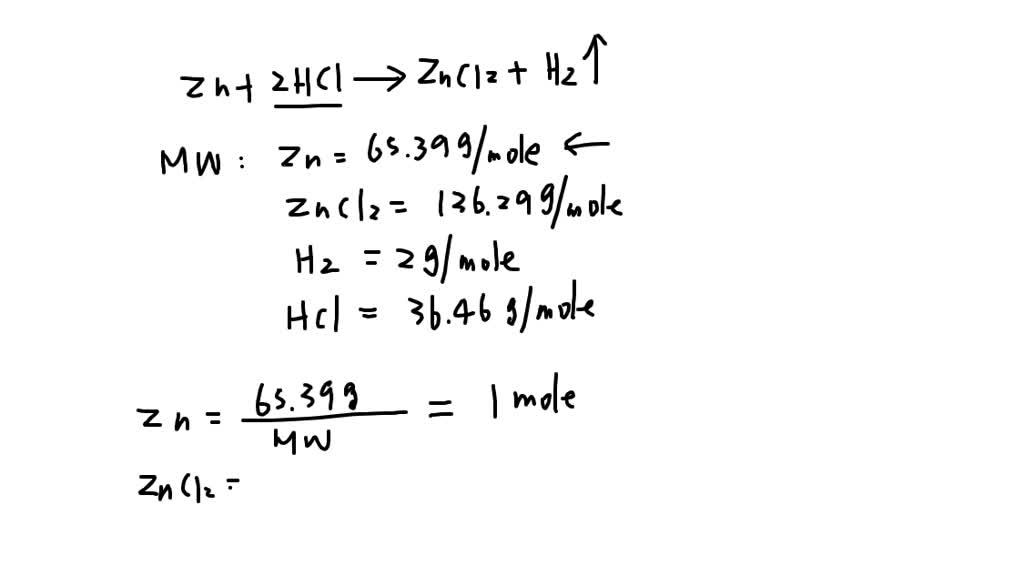 Zn + 2HCl → ZnCl2 + H2 ↑
MW : Zn = 65.39 g/mole ←
ZnCl2 = 136.29 g/mole
H2 = 2 g/mole
HCl = 36.46 g/mole
Zn = 65.39 g / MW = 1 mole
ZnCl2 =